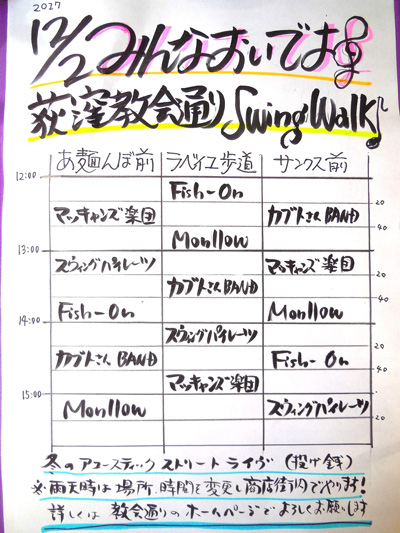 2017
12/2 みんなおいでよ
荻窪教会通り Swing Walk
あ麺んぼ前 ラベイユ歩道 サンクス前
12:00
Fish-On
マッキャンズ楽団 カブトさんBAND 20
40
Monllow
13:00
スウィングパイレーツ マッキャンズ楽団 20
カブトさんBAND
40
Fish-On Monllow
14:00
スウィングパイレーツ 20
カブトさんBAND Fish-On
40
マッキャンズ楽団
15:00
Monllow スウィングパイレーツ 20
冬のアコースティックストリートライヴ (投げ銭)
※雨天時は場所、時間を変更し商店街内でやります!
詳しくは教会通りのホームページでよろしくお願いします